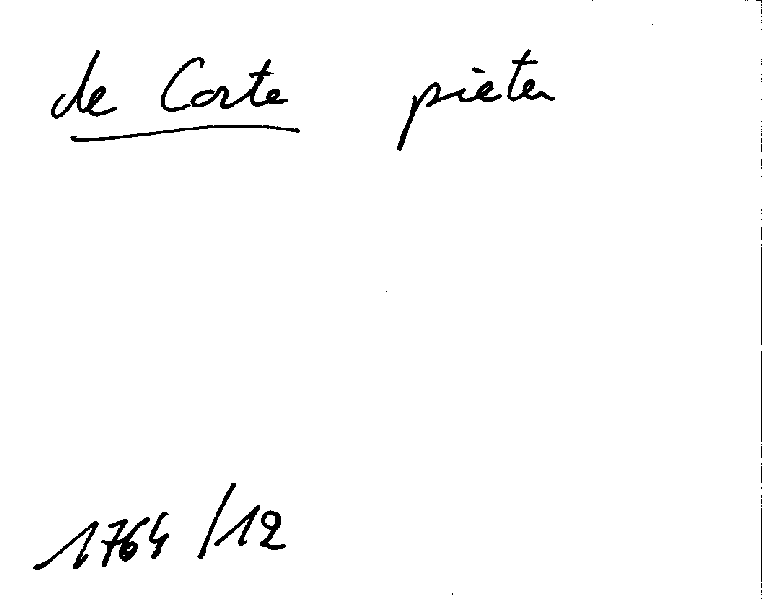 de Corte pieter
1764/12